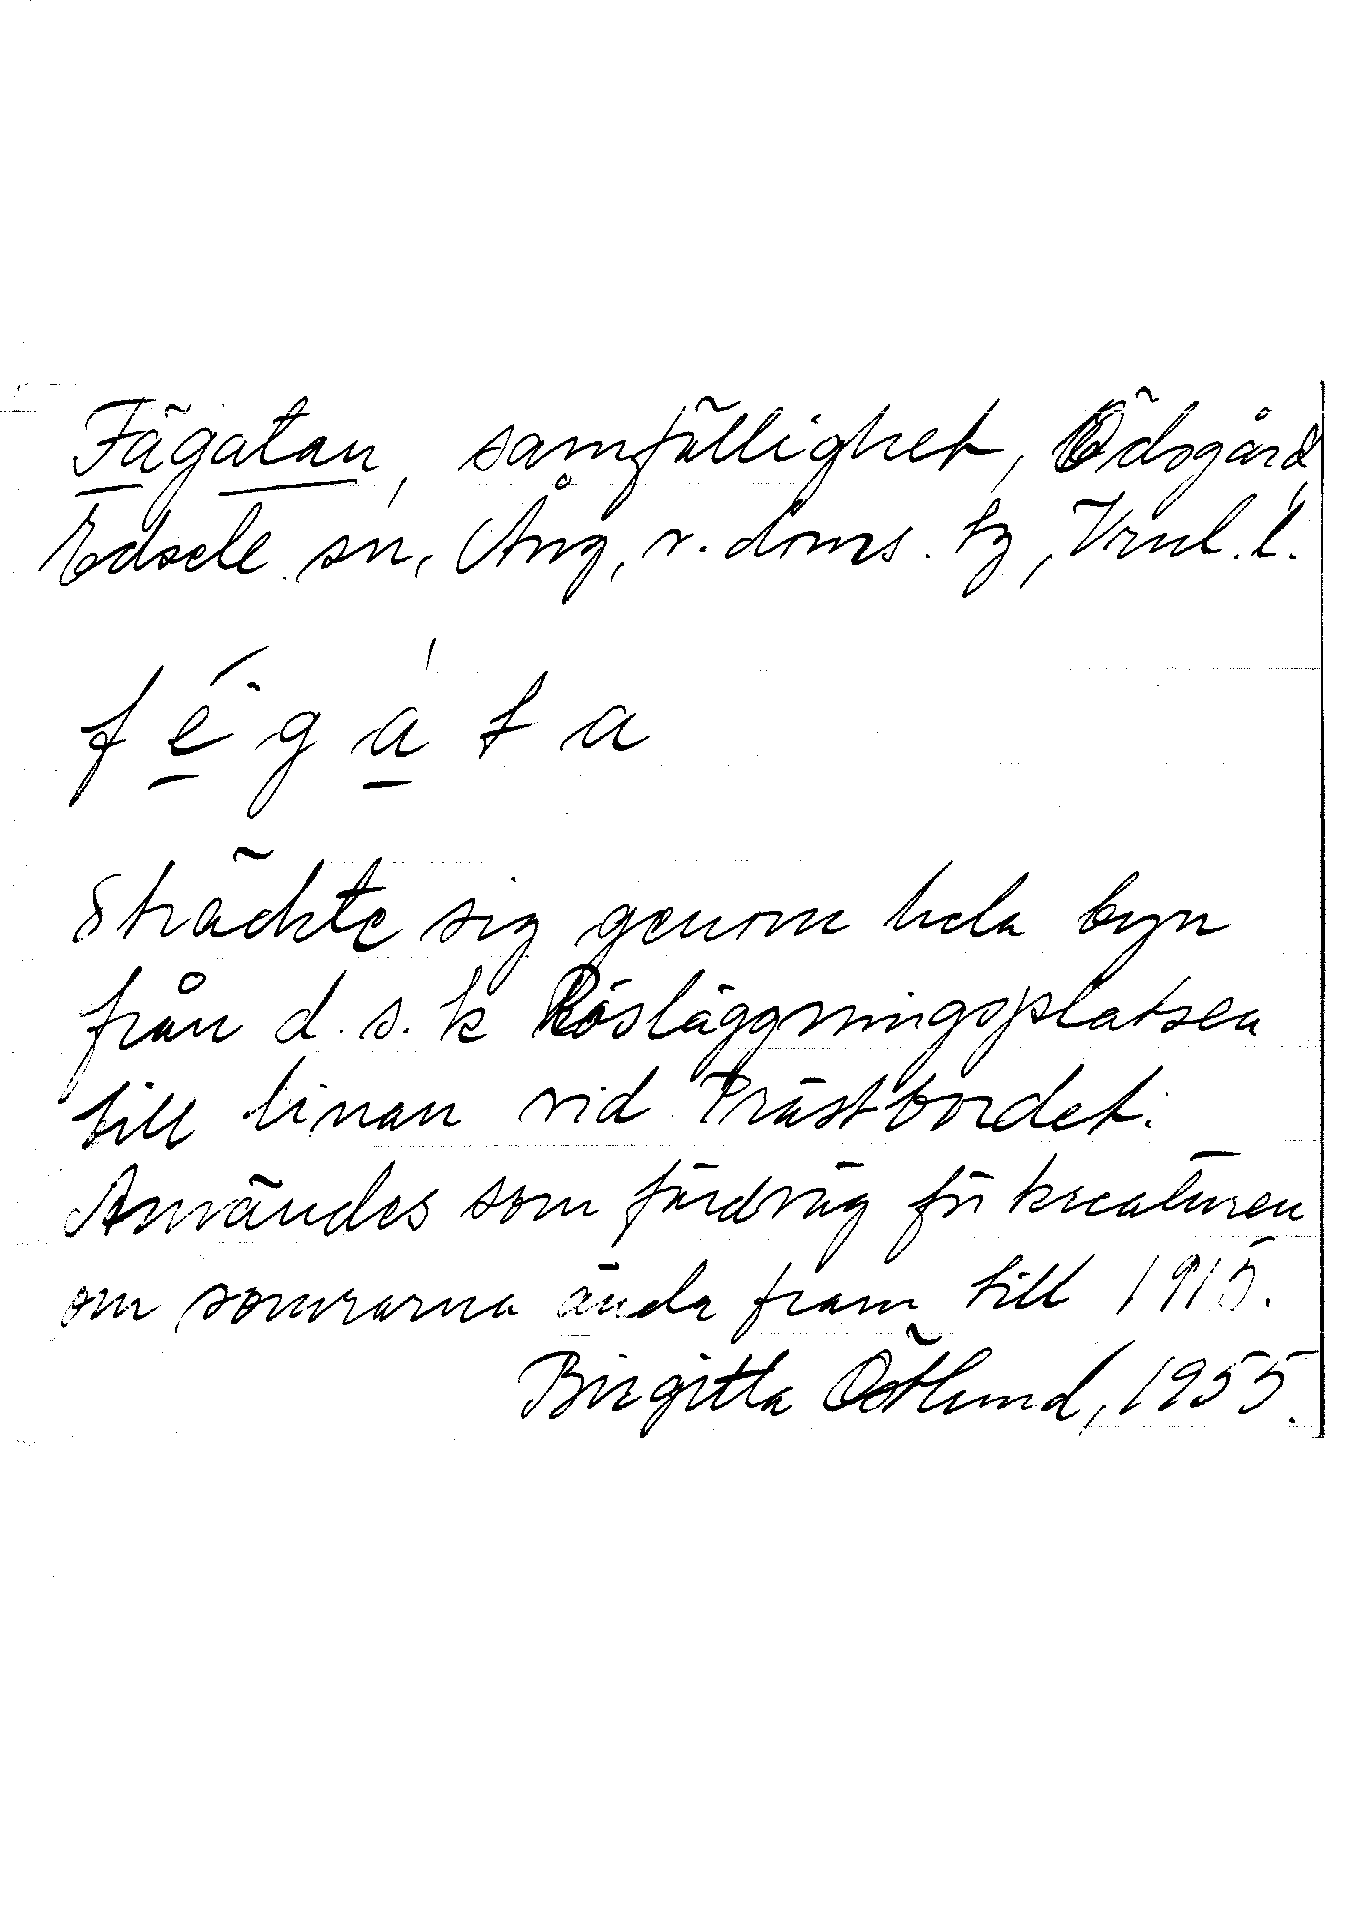 Fägatan, samfällighet, Ödsgård,
Edsele sn, Ång, v. doms. tg, Vrnl. l.
f é g á t a
Sträckte sig genom hela byn
från d. s. k Rösläggningsplatsen
till linan vid Prästbordet.
Användes som färdväg för kreaturen
om somrarna ända fram till 1915.
Birgitta Östlund, 1955.